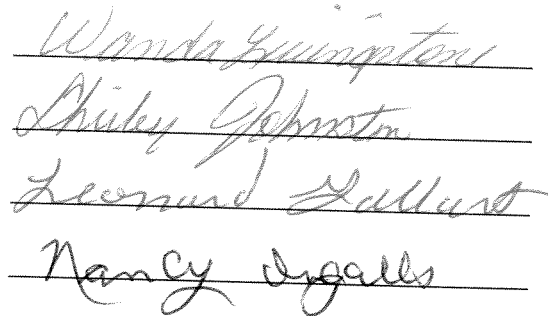 Wanda Livingston
Shirley Johnston
Leonard Gallant
Nancy Ingalls